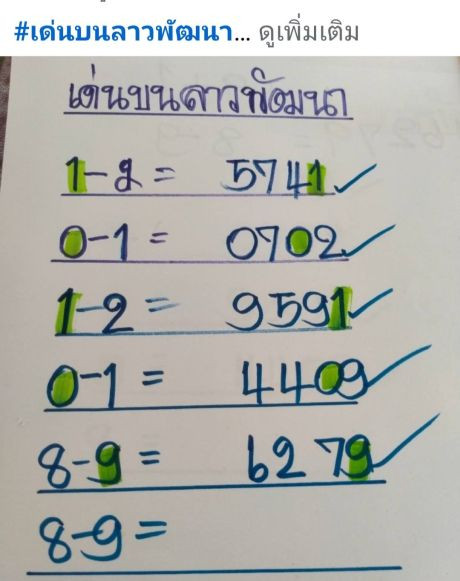 #เด่นบนลาวพัฒนา... ดูเพิ่มเติม
เด่นบนลาวพัฒนา
1-2 = 5741
0-1 = 0702
1-2 = 9591
0-1 = 4409
8-9 = 6279
8-9 =